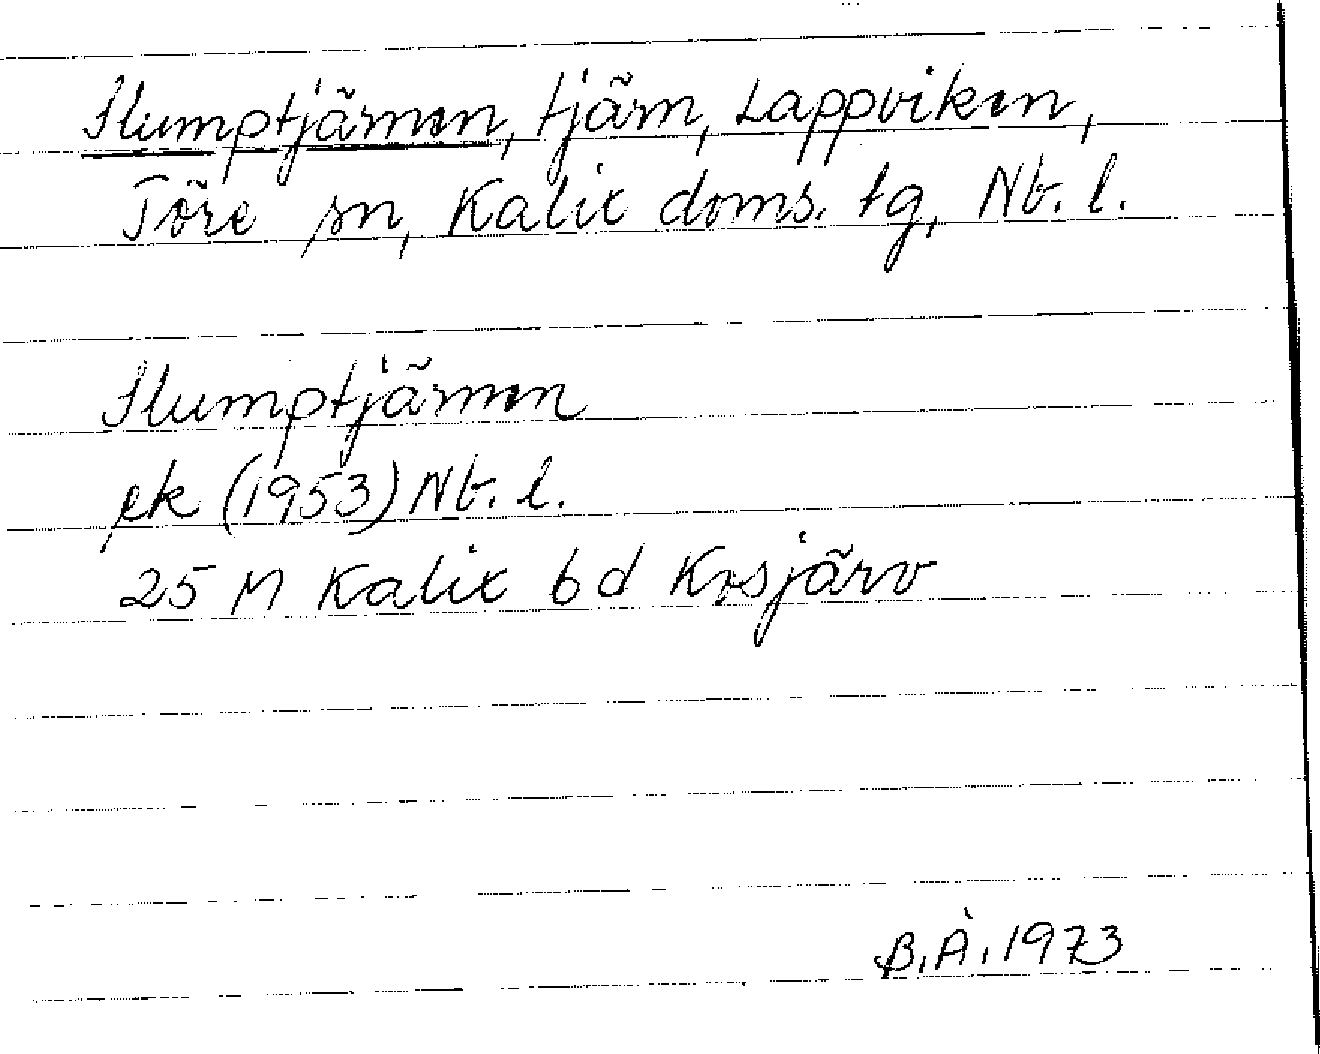 Slumptjärnen, tjärn, Lappviken,
Töre sn, Kalix doms. tg, Nb. l.
Slumptjärnen
ek (1953) Nb. l.
25 M Kalix 6 d Kosjärv
B.Å. 1973